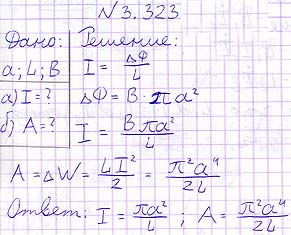 N 3.323
Дано: Решение:
a; L; B
а) I = ?
б) A = ?
I = ΔФ/L
ΔФ = B · πa²
I = Bπa²/L
A = ΔW = LI²/2 = π²a⁴/2L
Ответ: I = πa²/L ; A = π²a⁴/2L